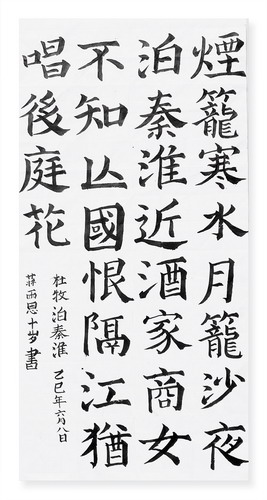 煙籠寒水月籠沙夜
泊秦淮近酒家商女
不知亾國恨隔江猶
唱後庭花
杜牧泊秦淮 乙巳年六月八日
蔣雨恩十岁書